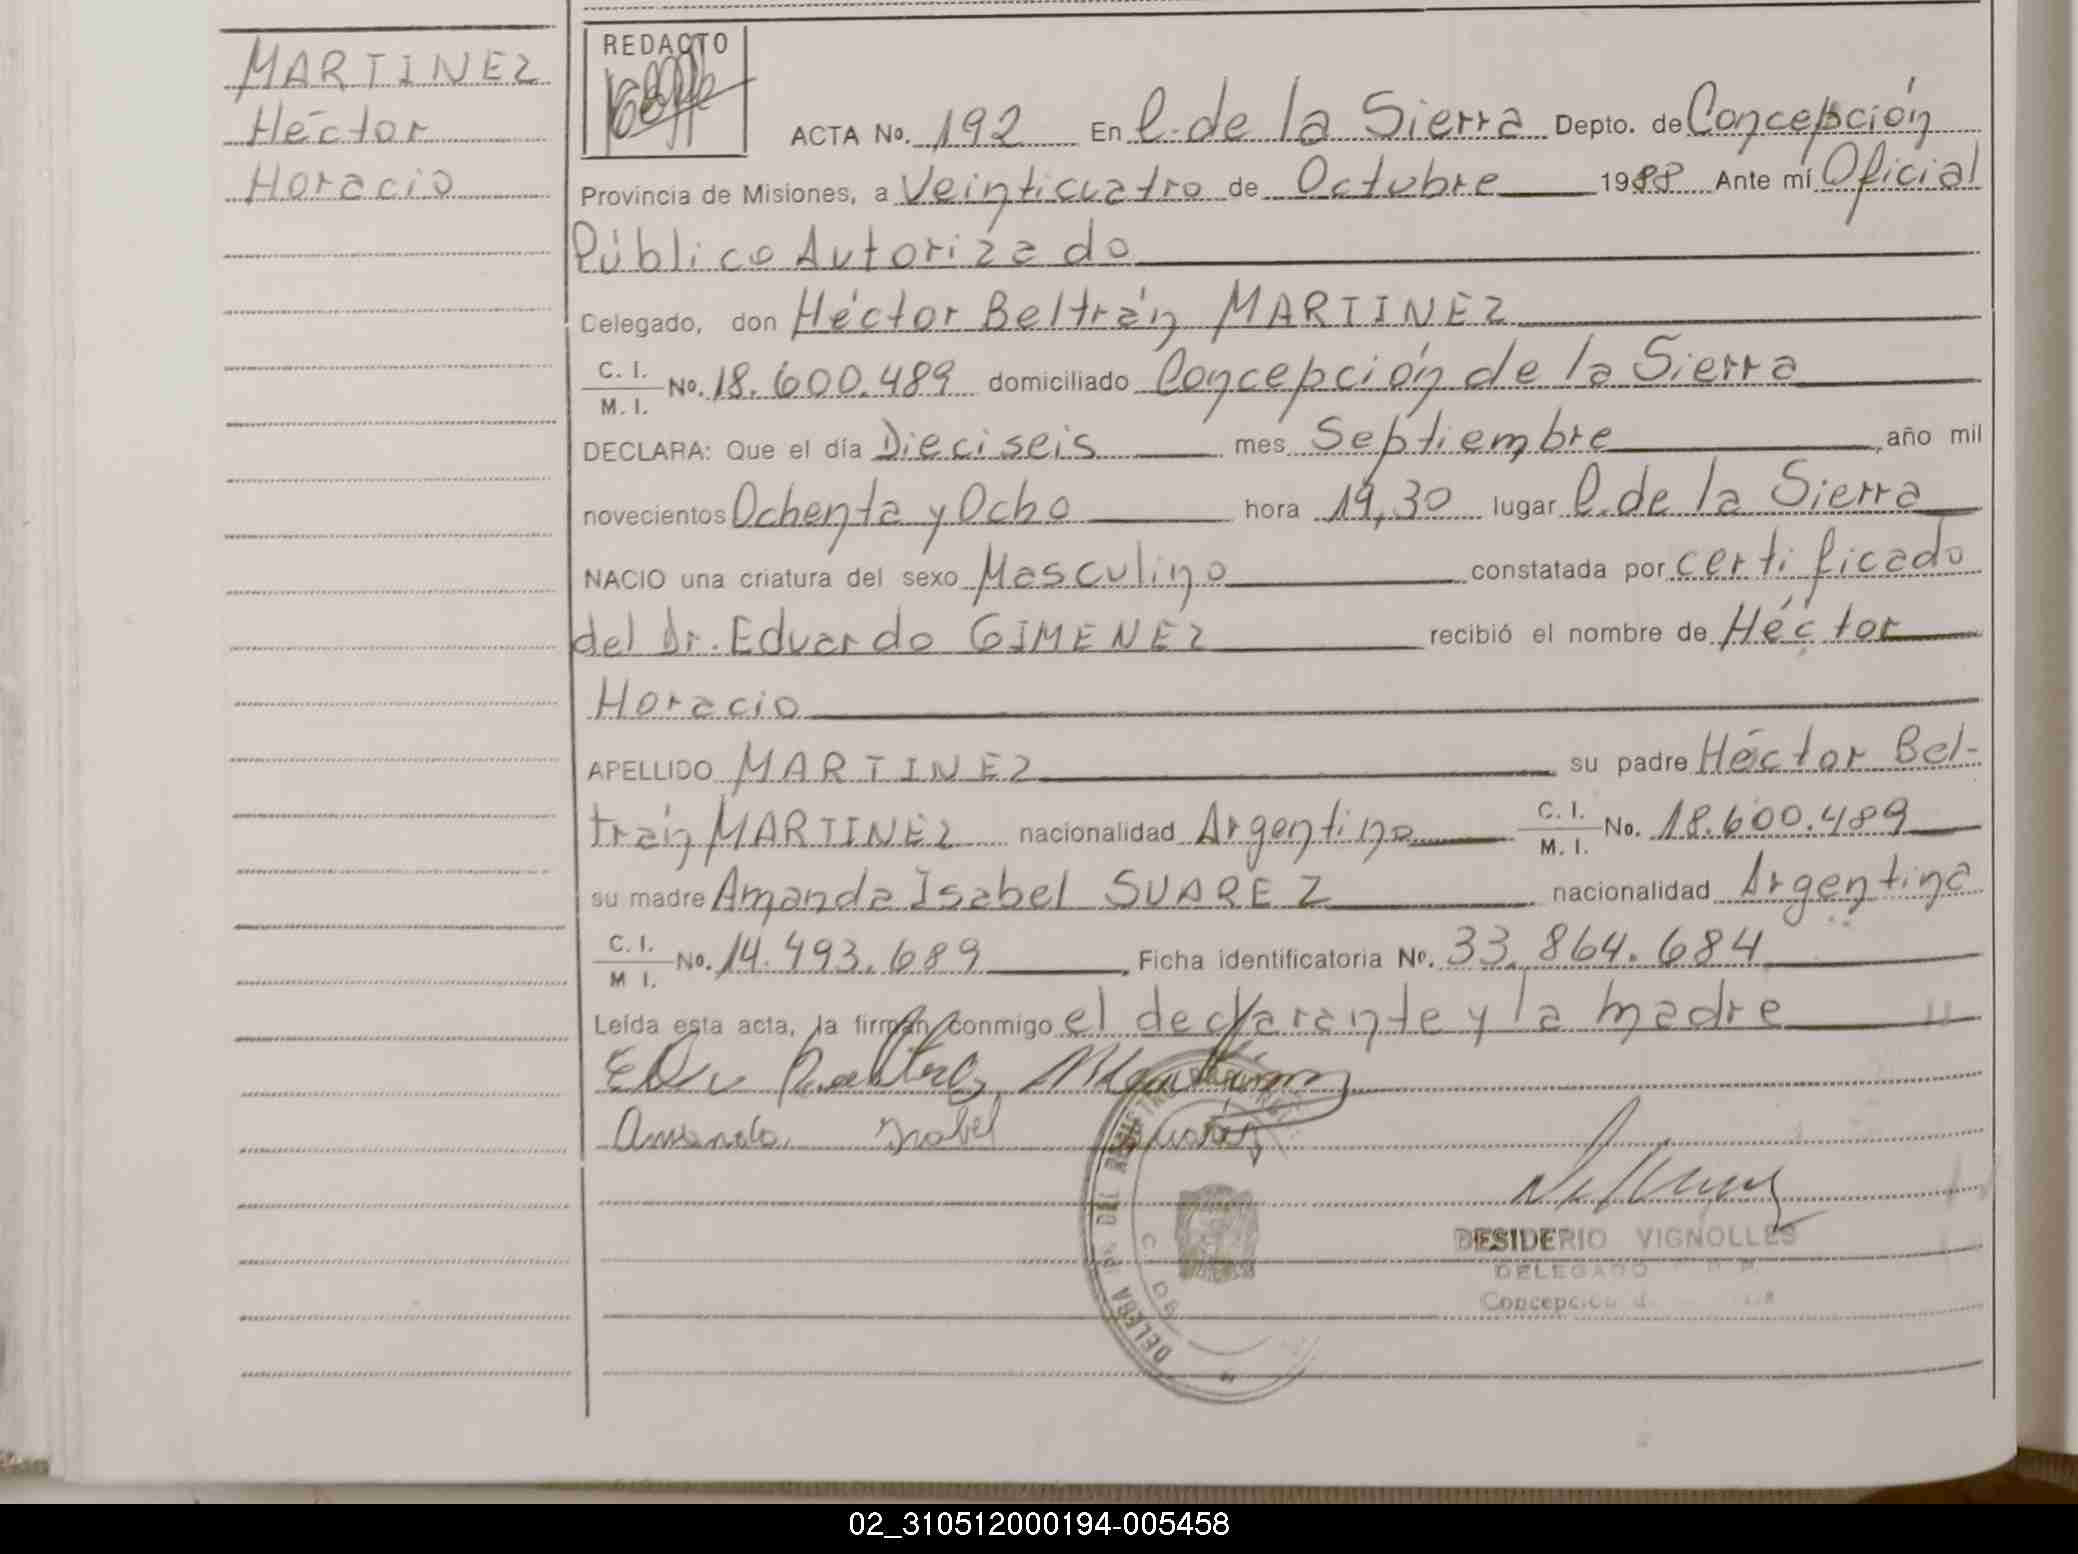 MARTINEZ
Héctor
Horacio
REDACTO
ACTA No. 192 En C. de la Sierra Depto. de Concepción
Provincia de Misiones, a Veinticuatro de Octubre 1988 Ante mí Oficial
Público Autorizado
Delegado, don Héctor Beltrán MARTINEZ
C. I.
M. I. No. 18.600.489 domiciliado Concepción de la Sierra
DECLARA: Que el día Dieciseis mes Septiembre, año mil
novecientos Ochenta y Ocho hora 19,30 lugar C. de la Sierra
NACIO una criatura del sexo Masculino constatada por certificado
del Dr. Eduardo GIMENEZ recibió el nombre de Héctor
Horacio
APELLIDO MARTINEZ su padre Héctor Bel-
trán MARTINEZ nacionalidad Argentino C. I. M. I. No. 18.600.489
su madre Amanda Isabel SUAREZ nacionalidad Argentina
C. I.
M I. No. 14.493.689, Ficha identificatoria No. 33.864.684
Leída esta acta, la firman conmigo el declarante y la madre
Amanda Isabel Suarez
DESIDERIO VIGNOLLES
DELEGADO
02_310512000194-005458